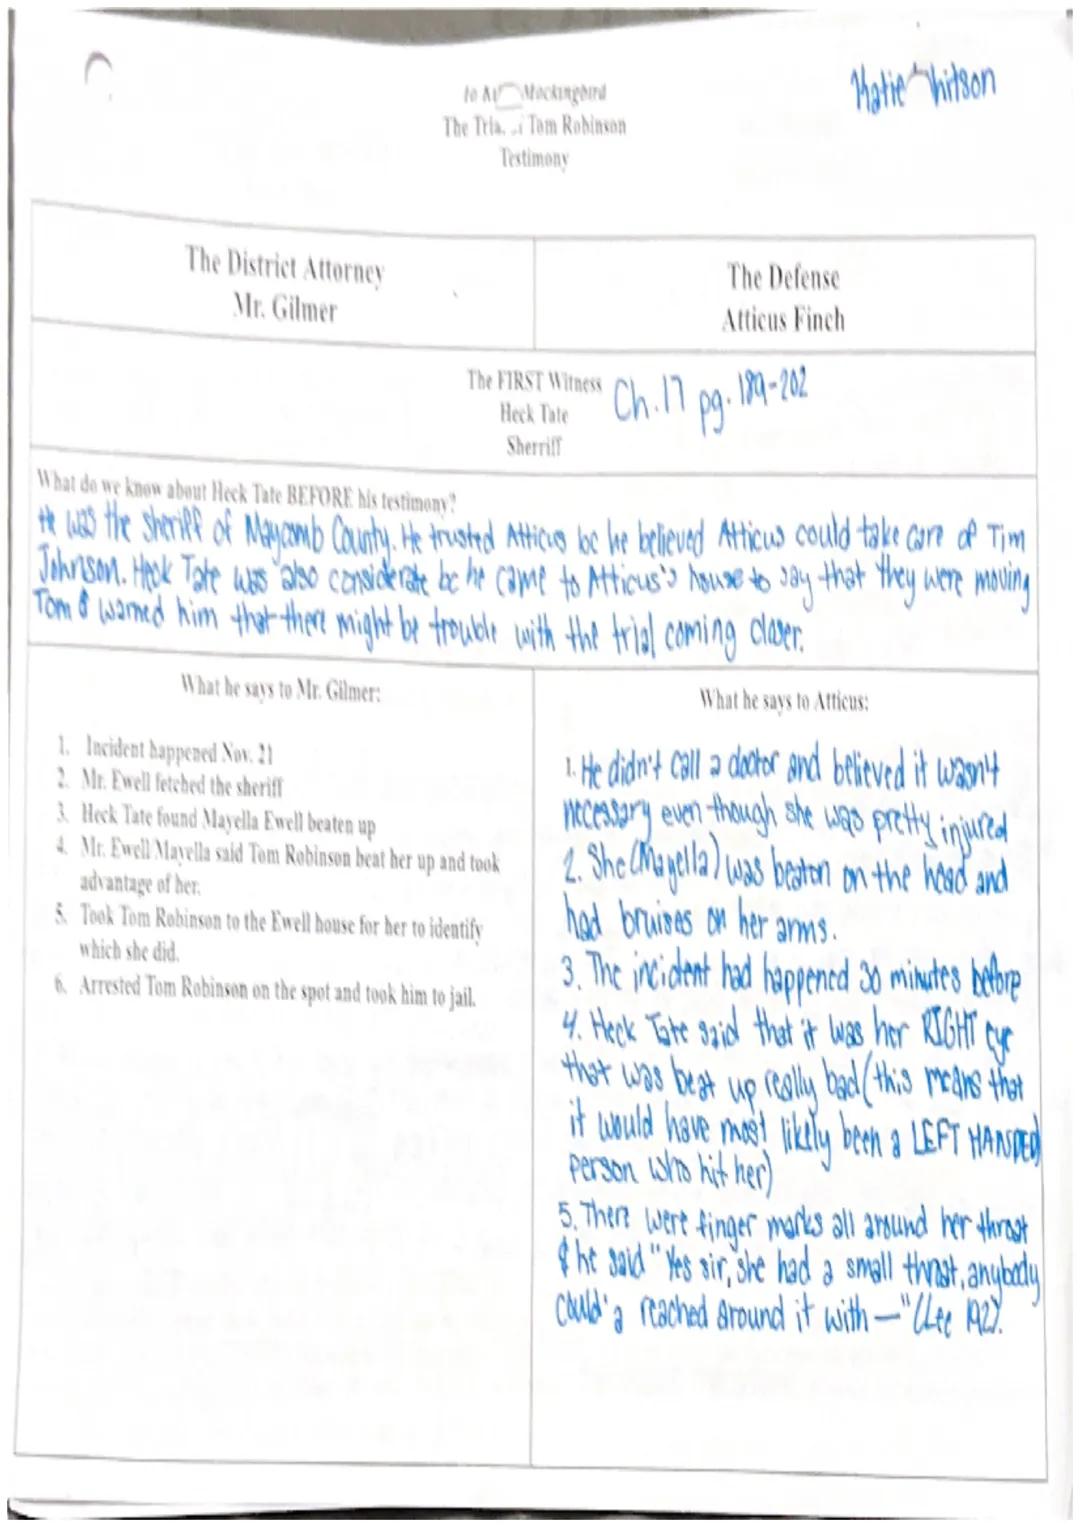 to Mockingbird
Katie hitson
The Tom Robinson
Testimony
The District Attorney
Mr. Gilmer
The Defense
Atticus Finch
The FIRST Witness Ch.17 pg. 189-202
Heck Tate
Sherriff
What do we know about Heck Tate BEFORE his testimony?
He was the sheriff of Maycomb County. He trusted Atticus bc he believed Atticus could take care of Tim
Johnson. Heck Tate was also considerate bc he came to Atticus's house to say that they were moving
Tom & warned him that there might be trouble with the trial coming closer.
What he says to Mr. Gilmer:
1. Incident happened Nov. 21
2. Mr. Ewell fetched the sheriff
3. Heck Tate found Mayella Ewell beaten up
4. Mr. Ewell Mayella said Tom Robinson beat her up and took
advantage of her.
5. Took Tom Robinson to the Ewell house for her to identify
which she did.
6. Arrested Tom Robinson on the spot and took him to jail.
What he says to Atticus:
1. He didn't call a doctor and believed it wasn't
necessary even though she was pretty injured
2. She (Mayella) was beaten on the head and
had bruises on her arms.
3. The incident had happened 30 minutes before
4. Heck Tate said that it was her RIGHT eye
that was beat up really bad (this means that
it would have most likely been a LEFT HANDED
person who hit her)
5. There were finger marks all around her throat
& he said "Yes sir, she had a small throat, anybody
could'a reached around it with —" (Lee 192).